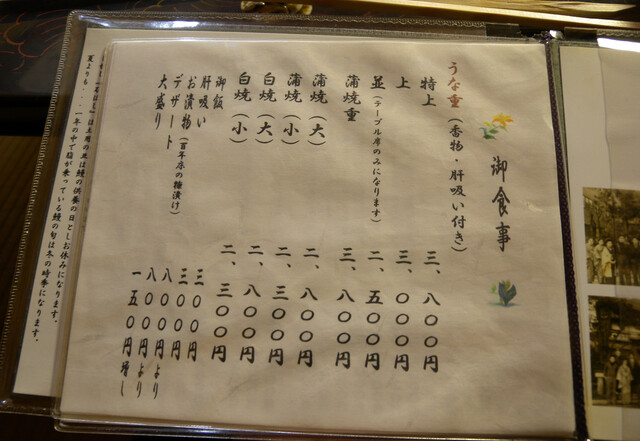 御食事
うな重(香物・肝吸い付き)
特上 三、八〇〇円
上 三、〇〇〇円
並(テーブル席のみになります) 二、五〇〇円
蒲焼重 三、八〇〇円
蒲焼(大) 二、八〇〇円
蒲焼(小) 二、三〇〇円
白焼(大) 二、八〇〇円
白焼(小) 二、三〇〇円
御飯 三〇〇円
肝吸い 三〇〇円
お漬物(百年床の糠漬け) 八〇〇円より
デザート 八〇〇円より
大盛り 一五〇円増し
は土用の丑は鰻の供養の日としお休みになります。
夏よりも・・・一年の中で脂が乗っている鰻の旬は冬の時季になります。